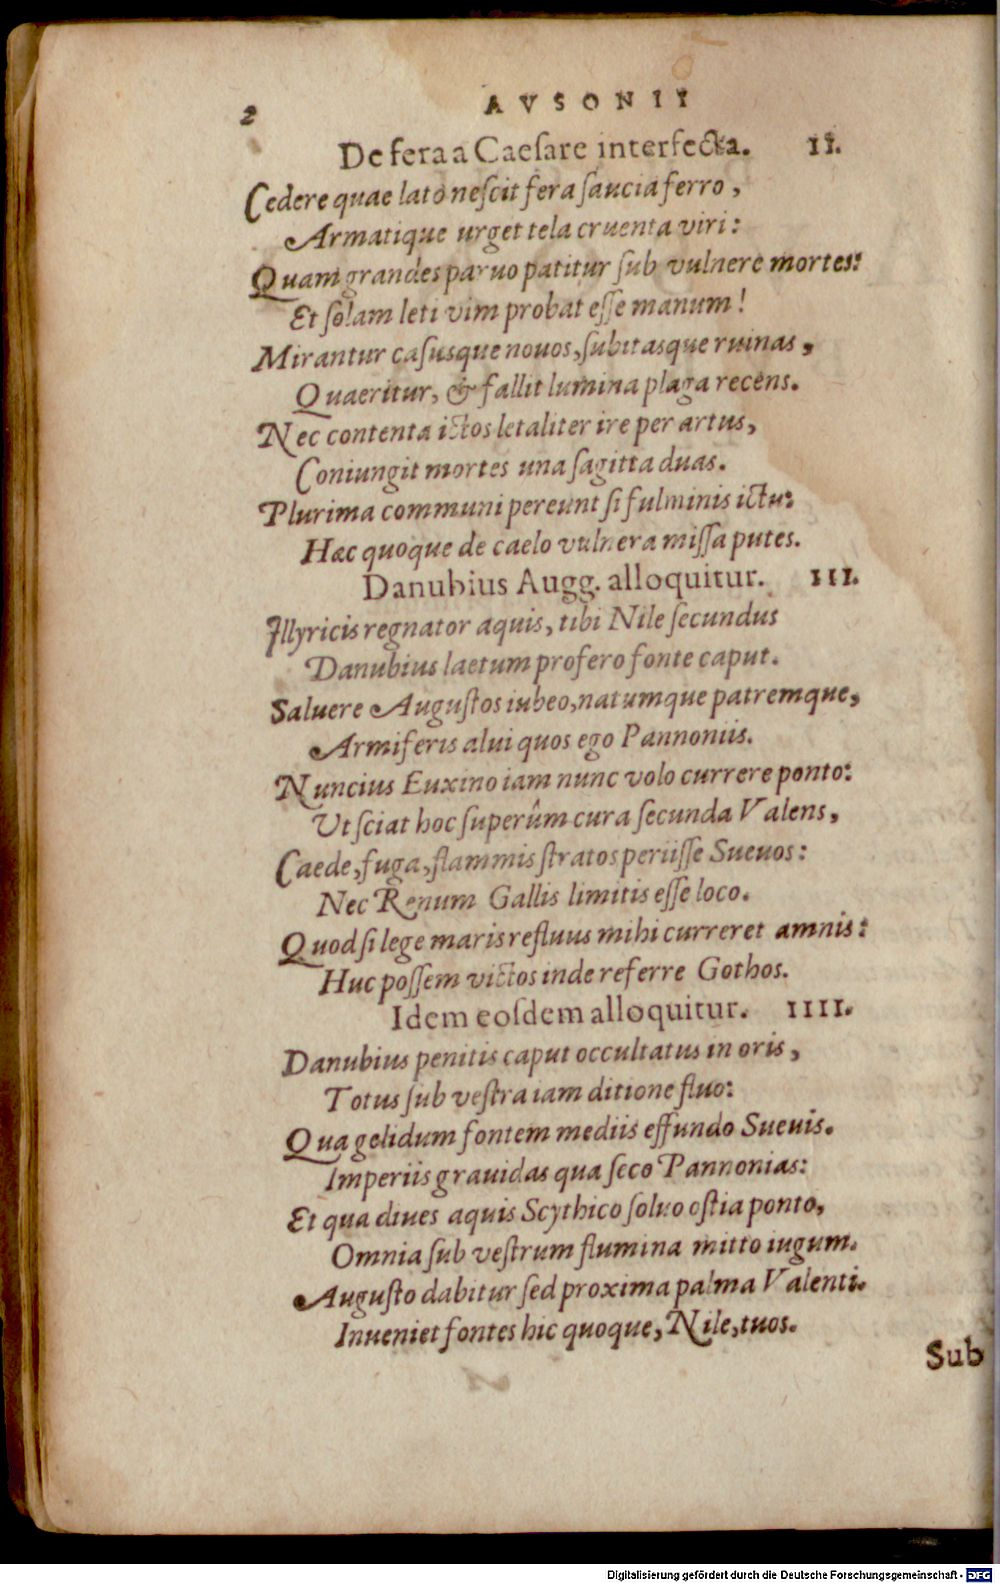 2 AVSONII
De fera a Caeſare interfecta. II.
Cedere quae lato neſcit fera ſaucia ferro,
Armatique urget tela cruenta viri:
Quam grandes paruo patitur ſub vulnere mortes:
Et ſolam leti vim probat eſſe manum!
Mirantur caſusque nouos, ſubitasque ruinas,
Quaeritur, & fallit lumina plaga recens.
Nec contenta ictos letaliter ire per artus,
Coniungit mortes una ſagitta duas.
Plurima communi pereunt ſi fulminis ictu:
Haec quoque de caelo vulnera miſſa putes.
Danubius Augg. alloquitur. III.
Illyricis regnator aquis, tibi Nile ſecundus
Danubius laetum profero fonte caput.
Saluere Auguſtos iubeo, natumque patremque,
Armiferis alui quos ego Pannoniis.
Nuncius Euxino iam nunc volo currere ponto:
Ut ſciat hoc ſuperûm cura ſecunda Valens,
Caede, fuga, flammis ſtratos periiſſe Sueuos:
Nec Renum Gallis limitis eſſe loco.
Quod ſi lege maris refluus mihi curreret amnis:
Huc poſſem victos inde referre Gothos.
Idem eoſdem alloquitur. IIII.
Danubius penitis caput occultatus in oris,
Totus ſub veſtra iam ditione fluo:
Qua gelidum fontem mediis effundo Sueuis.
Imperiis grauidas qua ſeco Pannonias:
Et qua diues aquis Scythico ſoluo oſtia ponto,
Omnia ſub veſtrum flumina mitto iugum.
Auguſto dabitur ſed proxima palma Valenti.
Inueniet fontes hic quoque, Nile, tuos.
Sub
Digitalisierung gefördert durch die Deutsche Forschungsgemeinschaft - DFG